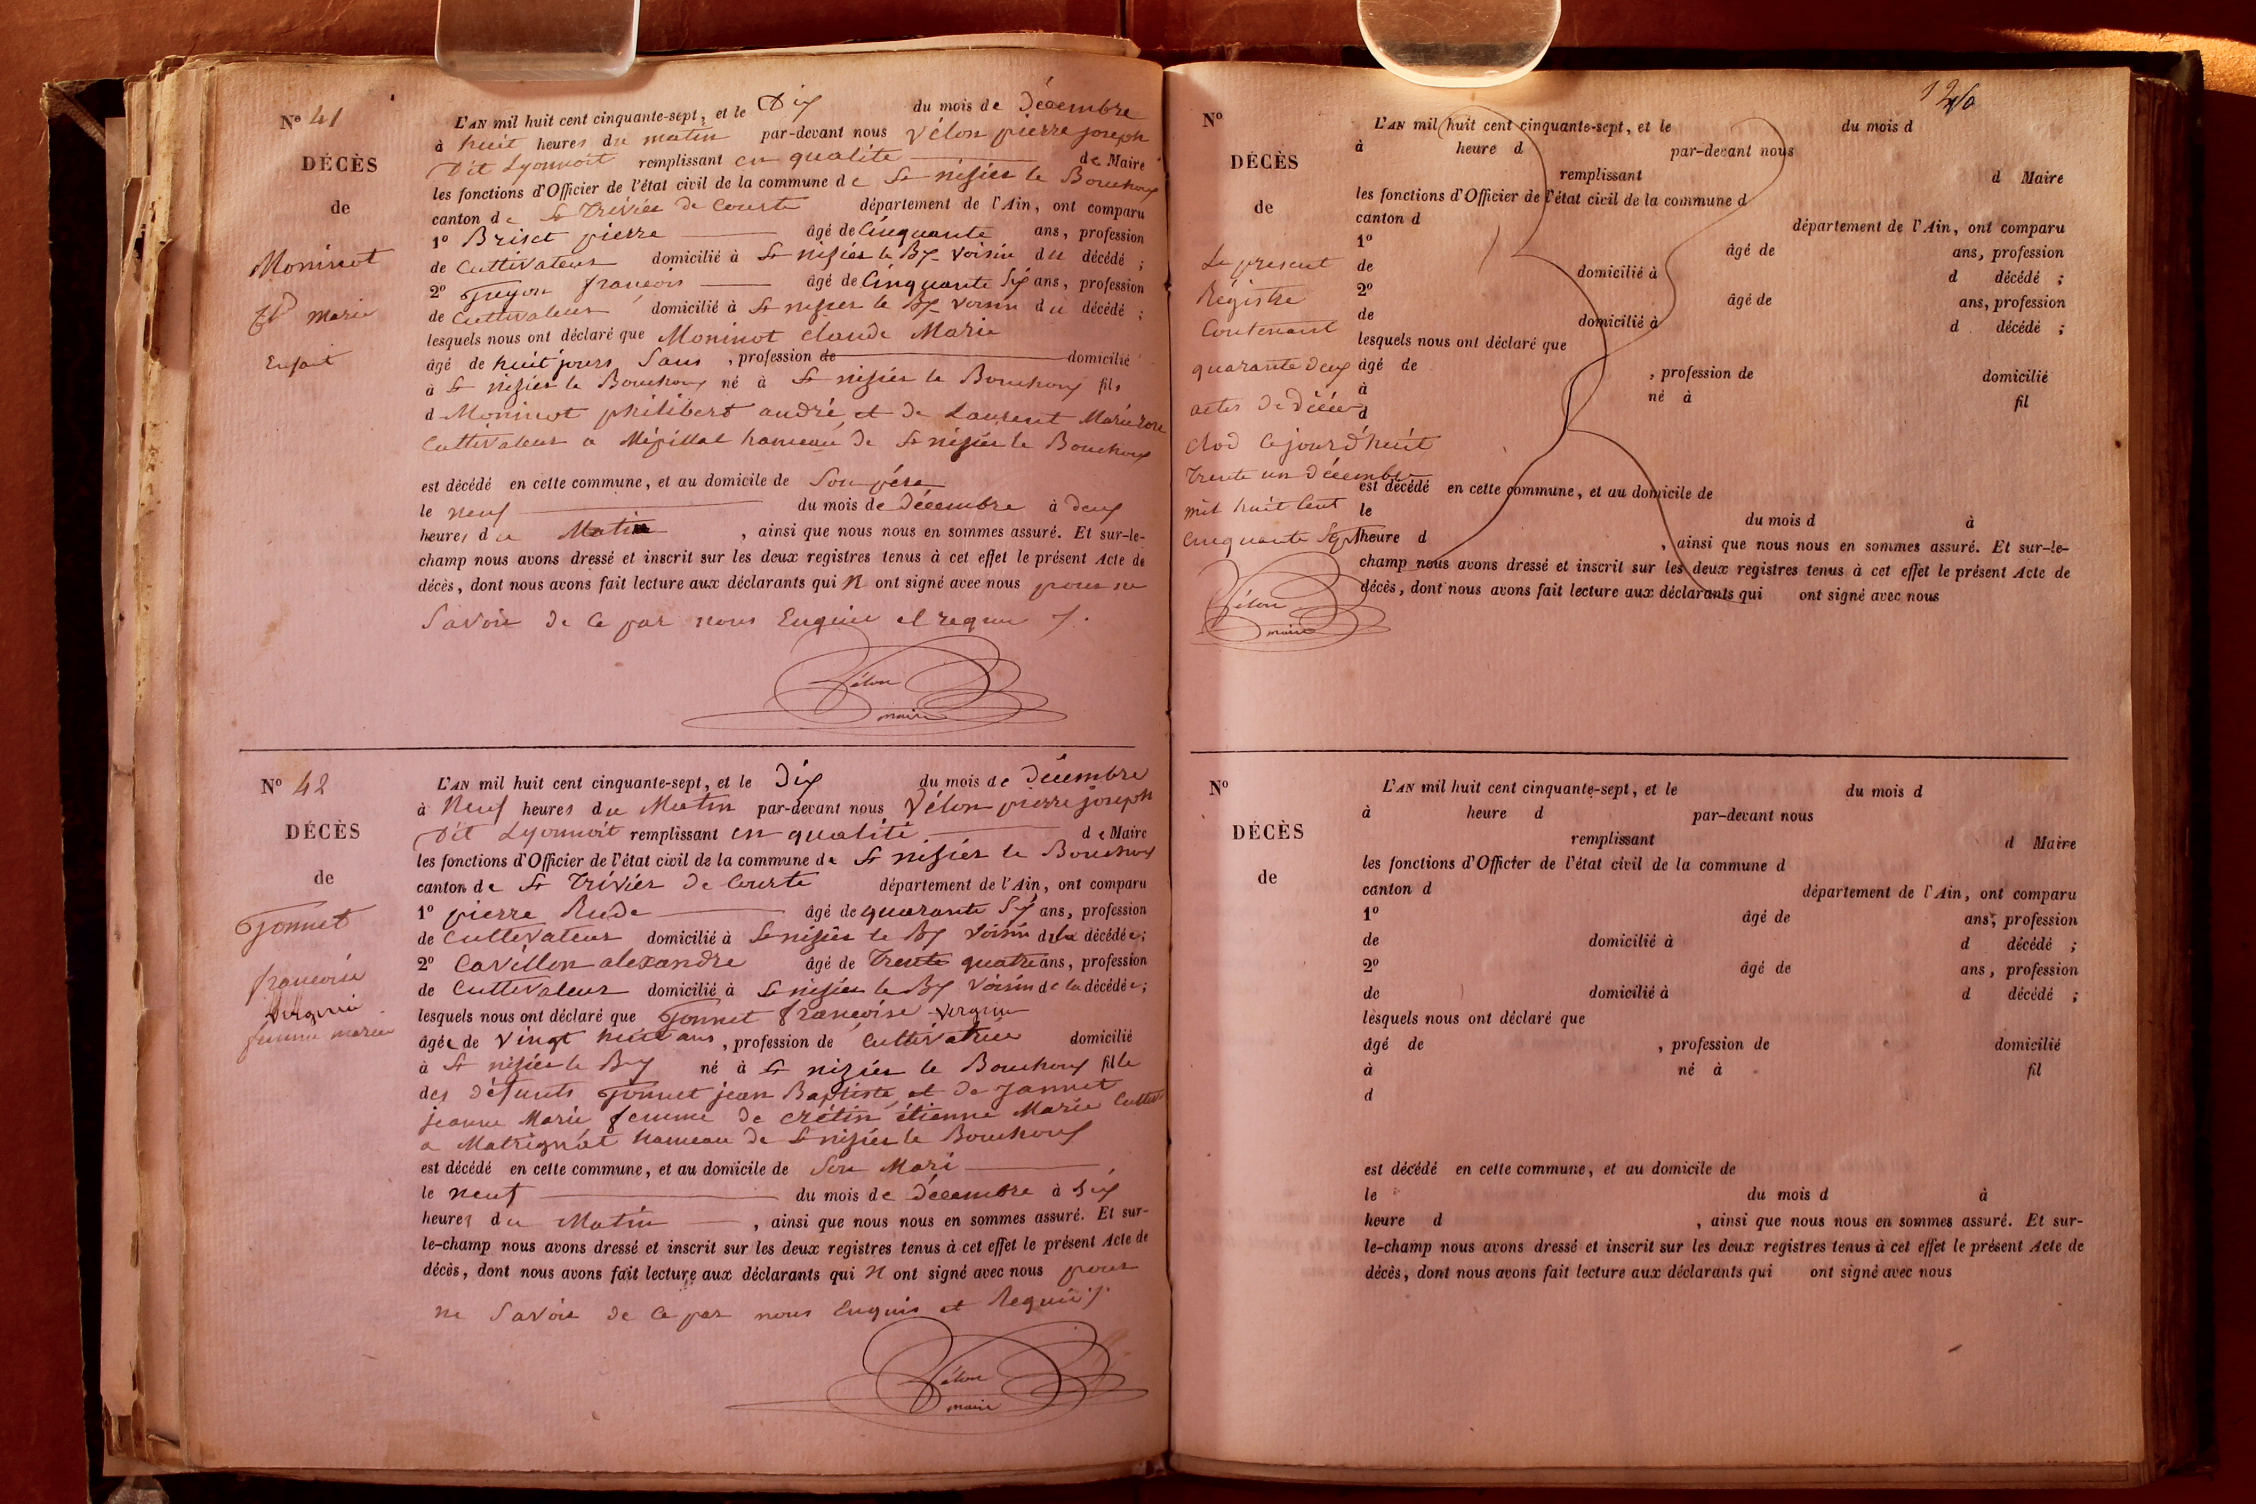 N.º 41
DÉCÈS
de
Moninot
Cl.d Marie
Enfant
L'AN mil huit cent cinquante-sept, et le Dix du mois de Décembre
à huit heures du matin par-devant nous Vélon pierre joseph
Dit Lyonnoit remplissant en qualité de Maire
les fonctions d'Officier de l'état civil de la commune de St nisier le Bouchoux
canton de St Trivier de Courte département de l'Ain, ont comparu
1º Briset pierre âgé de Cinquante ans, profession
de Cultivateur domicilié à St nisier le Bx voisin du décédé ;
2º françois âgé de Cinquante Six ans, profession
de Cultivateur domicilié à St nisier le Bx voisin du décédé ;
lesquels nous ont déclaré que Moninot claude Marie
âgé de huit jours Sans , profession de domicilié
à St nisier le Bouchoux né à St nisier le Bouchoux fils
d Moninot philibert andré et de Laurent Marie rose
Cultivateur a Mépillat hameau de St nisier le Bouchoux
est décédé en cette commune, et au domicile de Son père
le neuf du mois de Décembre à deux
heures du Matin , ainsi que nous nous en sommes assuré. Et sur-le-
champ nous avons dressé et inscrit sur les deux registres tenus à cet effet le présent Acte de
décès, dont nous avons fait lecture aux déclarants qui n ont signé avec nous pour ne
Savoir de ce par nous Enquie et requie
Vélon
maire
N.º 42
DÉCÈS
de
Gonnet
françoise
Virginie
femme marie
L'AN mil huit cent cinquante-sept, et le Dix du mois de Décembre
à Neuf heures du Matin par-devant nous Vélon pierre joseph
Dit Lyonnoit remplissant en qualité de Maire
les fonctions d'Officier de l'état civil de la commune de St nisier le Bouchoux
canton de St Trivier de Courte département de l'Ain, ont comparu
1º pierre Rude âgé de quarante Six ans, profession
de Cultivateur domicilié à St nisier le Bx voisin de la décédée ;
2º Cavillon alexandre âgé de Trente quatre ans, profession
de Cultivateur domicilié à St nisier le Bx voisin de la décédée ;
lesquels nous ont déclaré que Gonnet françoise Virginie
âgée de Vingt huit ans , profession de Cultivatrice domicilié
à St nisier le Bx né à St nizier le Bouchoux fille
des défunts Gonnet jean Baptiste et de Jannet
jeanne Marie femme de Crétin étienne Marie Cultiv
a Matrignat hameau de St nisier le Bouchoux
est décédé en cette commune, et au domicile de Son Mari
le neuf du mois de Décembre à Six
heures du Matin , ainsi que nous nous en sommes assuré. Et sur-
le-champ nous avons dressé et inscrit sur les deux registres tenus à cet effet le présent Acte de
décès, dont nous avons fait lecture aux déclarants qui n ont signé avec nous pour
ne Savoir de ce par nous Enquis et Requis
Vélon
maire
N.º
DÉCÈS
de
Le present
Régistre
Contenant
quarante deux
actes de décés
clod ce jourd'huit
trente un décembre
mil huit Cent
Cinquante Sept
Vélon
maire
L'AN mil huit cent cinquante-sept, et le du mois d
à heure d par-devant nous
remplissant d Maire
les fonctions d'Officier de l'état civil de la commune d
canton d département de l'Ain, ont comparu
1º âgé de ans, profession
de domicilié à d décédé ;
2º âgé de ans, profession
de domicilié à d décédé ;
lesquels nous ont déclaré que
âgé de , profession de domicilié
à né à fil
d
est décédé en cette commune, et au domicile de
le du mois d à
heure d , ainsi que nous nous en sommes assuré. Et sur-le-
champ nous avons dressé et inscrit sur les deux registres tenus à cet effet le présent Acte de
décès, dont nous avons fait lecture aux déclarants qui ont signé avec nous
N.º
DÉCÈS
de
L'AN mil huit cent cinquante-sept, et le du mois d
à heure d par-devant nous
remplissant d Maire
les fonctions d'Officier de l'état civil de la commune d
canton d département de l'Ain, ont comparu
1º âgé de ans, profession
de domicilié à d décédé ;
2º âgé de ans, profession
de domicilié à d décédé ;
lesquels nous ont déclaré que
âgé de , profession de domicilié
à né à fil
d
est décédé en cette commune, et au domicile de
le du mois d à
heure d , ainsi que nous nous en sommes assuré. Et sur-
le-champ nous avons dressé et inscrit sur les deux registres tenus à cet effet le présent Acte de
décès, dont nous avons fait lecture aux déclarants qui ont signé avec nous